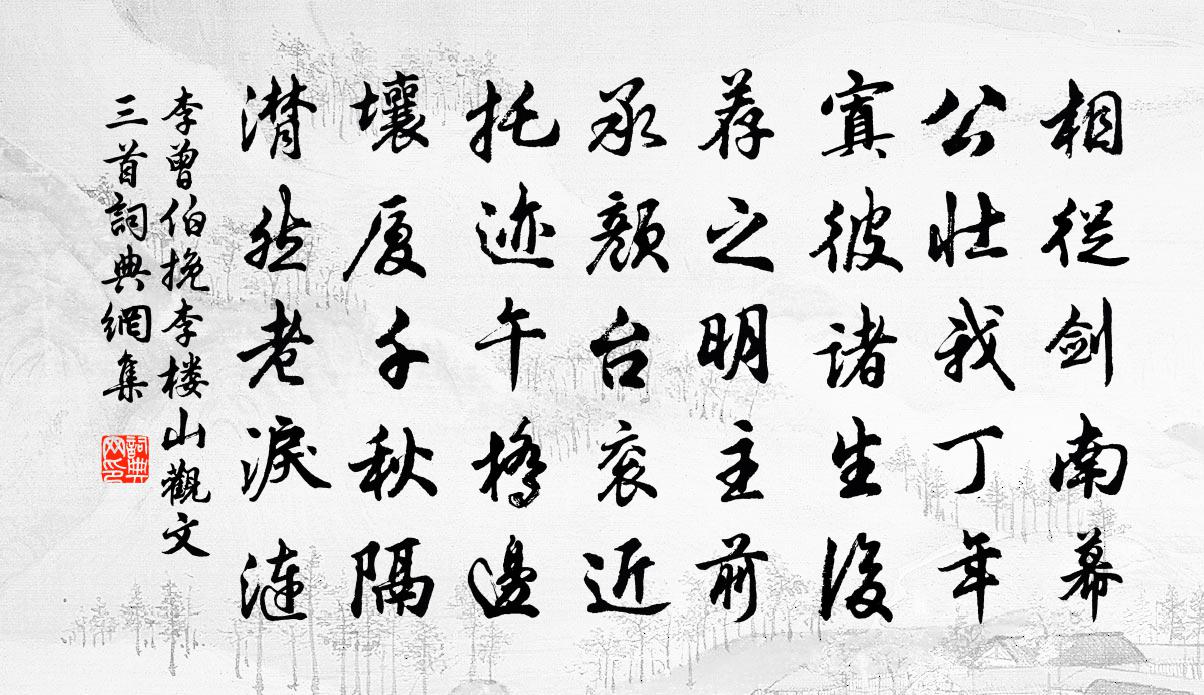 相從剑南幕
公壮我丁年
寘彼诸生後
荐之明主前
承颜台衮近
托迹午橋邊
壤厦千秋隔
潸然老淚涟
李曾伯挽李楼山觀文
三首詞典網集
詞典
网印